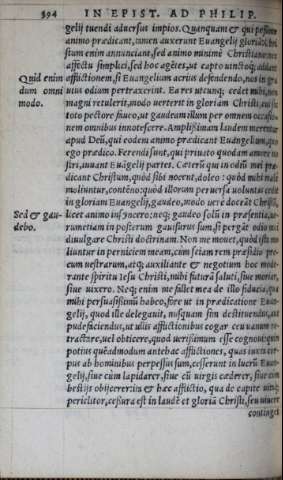 394 IN EPIST. AD PHILIP.
gelij tuendi aduersus impios. Quanquam & qui pessimo
animo prædicant, tamen auxerunt Euangelij gloriã: Chri
stum enim annunciant, sed animo minime Christiano: nec
affectu simplici, sed hoc agētes, ut capto uincto'q; addant
Quid enim afflictionem, si Euangelium acrius defendendo, nos in gra
dum omni uius odium pertraxerint. Ea res utcunq; cedet mihi, non
modo. magni retulerit, modo uerterit in gloriam Christi, cui sic
toto pectore faueo, ut gaudeam illum per omnem occasio-
nem omnibus innotescere. Amplißimam laudem merentur
apud Deū, qui eodem animo prædicant Euāgelium, quo
ego prædico. Ferendi sunt, qui priuato quodam amore no
stri, iuuant Euāgelij partes. Cæterũ qui in odiũ mei præ
dicant Christum, quòd sibi nocent, doleo: quòd mihi male
moliuntur, contēno: quòd illorum peruersa uoluntas cedit
in gloriam Euangelij, gaudeo, modo uere docãt Christũ,
Sed & gau- licet animo insyncero: neq; gaudeo solũ in præsentia, ue-
debo. rumetiam in posterum gauisurus sum, si pergãt odio mei
diuulgare Christi doctrinam. Non me mouet, quòd ista mo
liuntur in perniciem meam, cum sciam rem præsidio pre-
cum uestrarum, atq; auxiliante & negotium hoc mode-
rante spiritu Iesu Christi, mihi futurã saluti, siue moriar,
siue uixero. Neq; enim me fallet mea de illo fiducia, qua
mihi persuasißimũ habeo, fore ut in prædicatione Euan-
gelij, quod ille delegauit, nusquam sim destituendus, aut
pudefaciendus, ut ullis afflictionibus cogar ceu uanum re-
tractare, uel obticere, quod uerißimum esse cognoui: quin
potius quēadmodum antehac afflictiones, quas iam sæpe
pus ab hominibus perpessus sum, cesserunt in lucrū Euan-
gelij, siue cum lapidarer, siue cũ uirgis cæderer, siue cum
bestijs obijcerer: ita & hæc afflictio, qua de capite
periclitor, cessura est in laudē et gloriã Christi, seu uiuere
continget